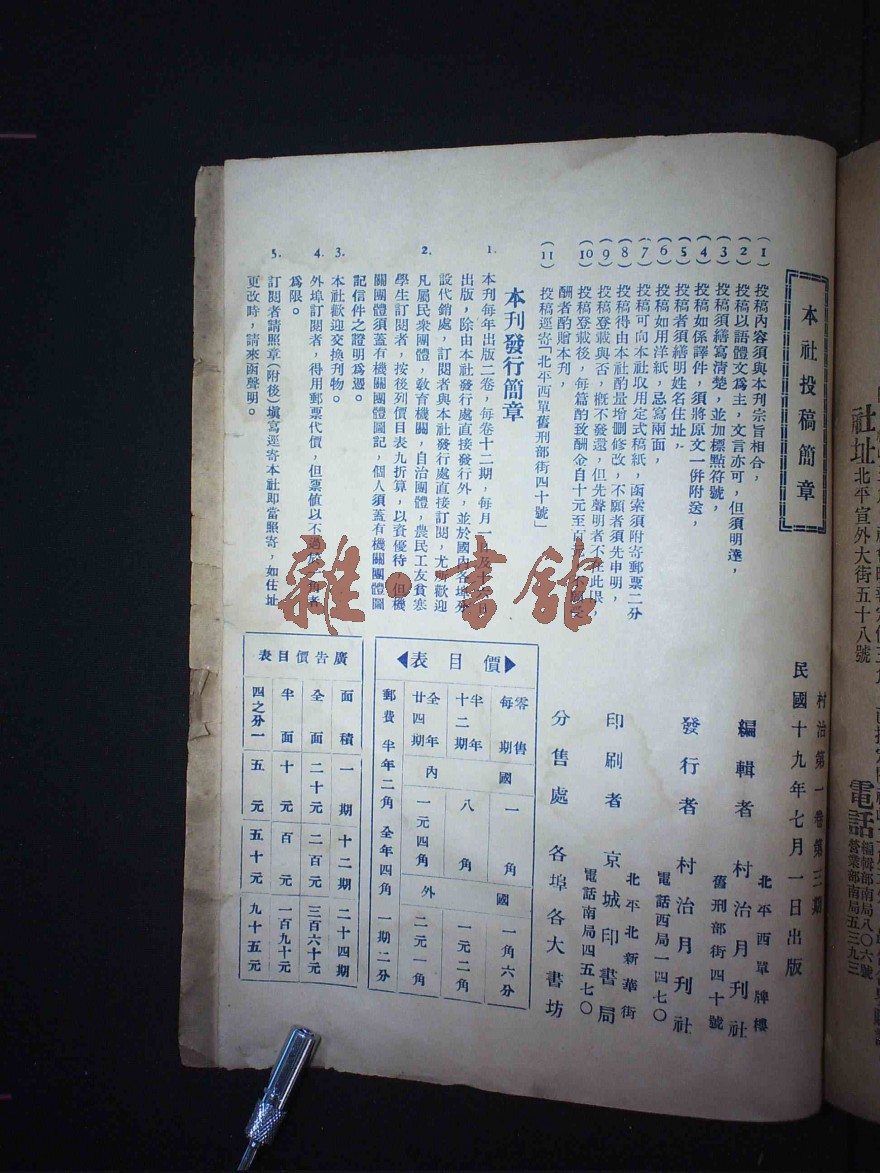 本社投稿簡章
(1) 投稿內容須與本刊宗旨相合，
(2) 投稿以語體文爲主，文言亦可，但須明達，
(3) 投稿須繕寫清楚，並加標點符號，
(4) 投稿如係譯件，須將原文一併附送，
(5) 投稿者須繕明姓名住址，
(6) 投稿如用洋紙，忌寫兩面，
(7) 投稿可向本社取用定式稿紙，函索須附寄郵票二分
(8) 投稿得由本社酌量增删修改，不願者須先申明，
(9) 投稿登載與否，槪不發還，但先聲明者不在此限，
(10) 投稿登載後，每篇酌致酬金自十元至百元
酬者酌贈本刊，
(11) 投稿逕寄「北平西單舊刑部街四十號」
本刊發行簡章
1. 本刊每年出版二卷，每卷十二期，每月一日及十六日
出版，除由本社發行處直接發行外，並於國內各埠分
設代銷處，訂閱者與本社發行處直接訂閱，尤所歡迎
2. 凡屬民衆團體，敎育機關，自治團體，農民工友貧寒
學生訂閱者，按後列價目表九折算，以資優待，但機
關團體須蓋有機關團體圖記，個人須蓋有機關團體圖
記信件之證明爲憑。
3. 本社歡迎交換刊物。
4. 外埠訂閱者，得用郵票代價，但票値以不過於一角者
爲限。
5. 訂閱者請照章(附後)塡寫逕寄本社卽當照寄，如住址
更改時，請來函聲明。
雜·書館
村治第一卷第三期
民國十九年七月一日出版
編輯者 村治月刊社
北平西單牌樓
舊刑部街四十號
發行者 村治月刊社
電話西局一四七〇
印刷者 京城印書局
北平北新華街
電話南局四五七〇
分售處 各埠各大書坊
價目表
零售每期 國內 一角 國外 一角六分
半年十二期 八角 一元二角
全年廿四期 一元四角 二元一角
郵費 半年二角 全年四角 一期二分
廣告價目表
面積 一期 十二期 二十四期
全面 二十元 二百元 三百六十元
半面 十元 百元 一百九十元
四之分一 五元 五十元 九十五元
社址 北平宣外大街五十八號
電話 編輯部南局八〇六號
營業部南局五三九三